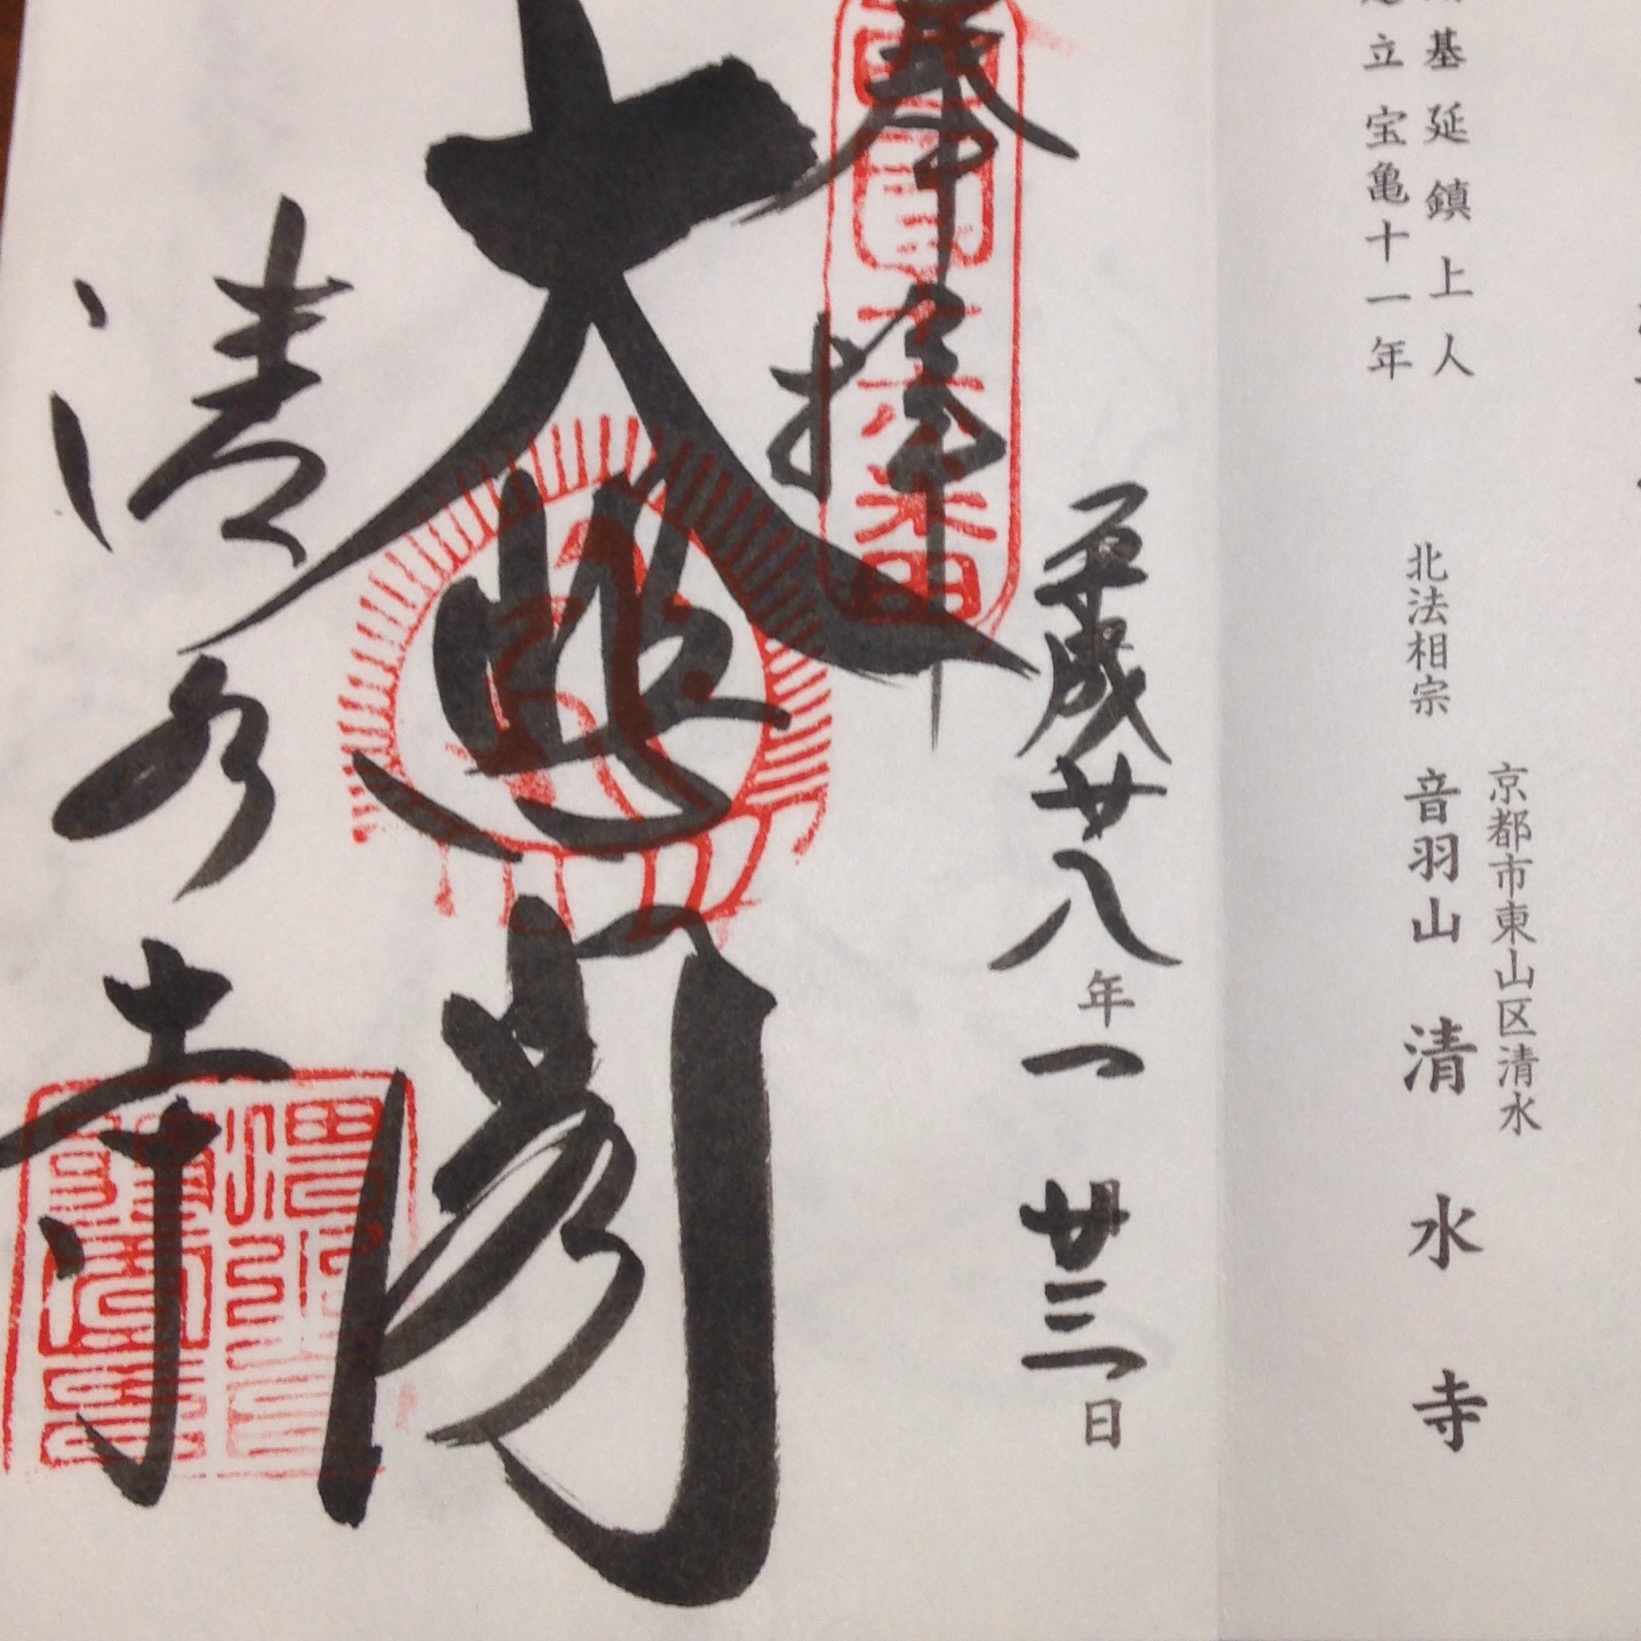 基 延 鎮 上 人
立 宝亀十一年
京都市東山区清水
北法相宗 音羽山 清水寺
奉拝
平成廿八年一 廿三日
大悲閣
清水寺